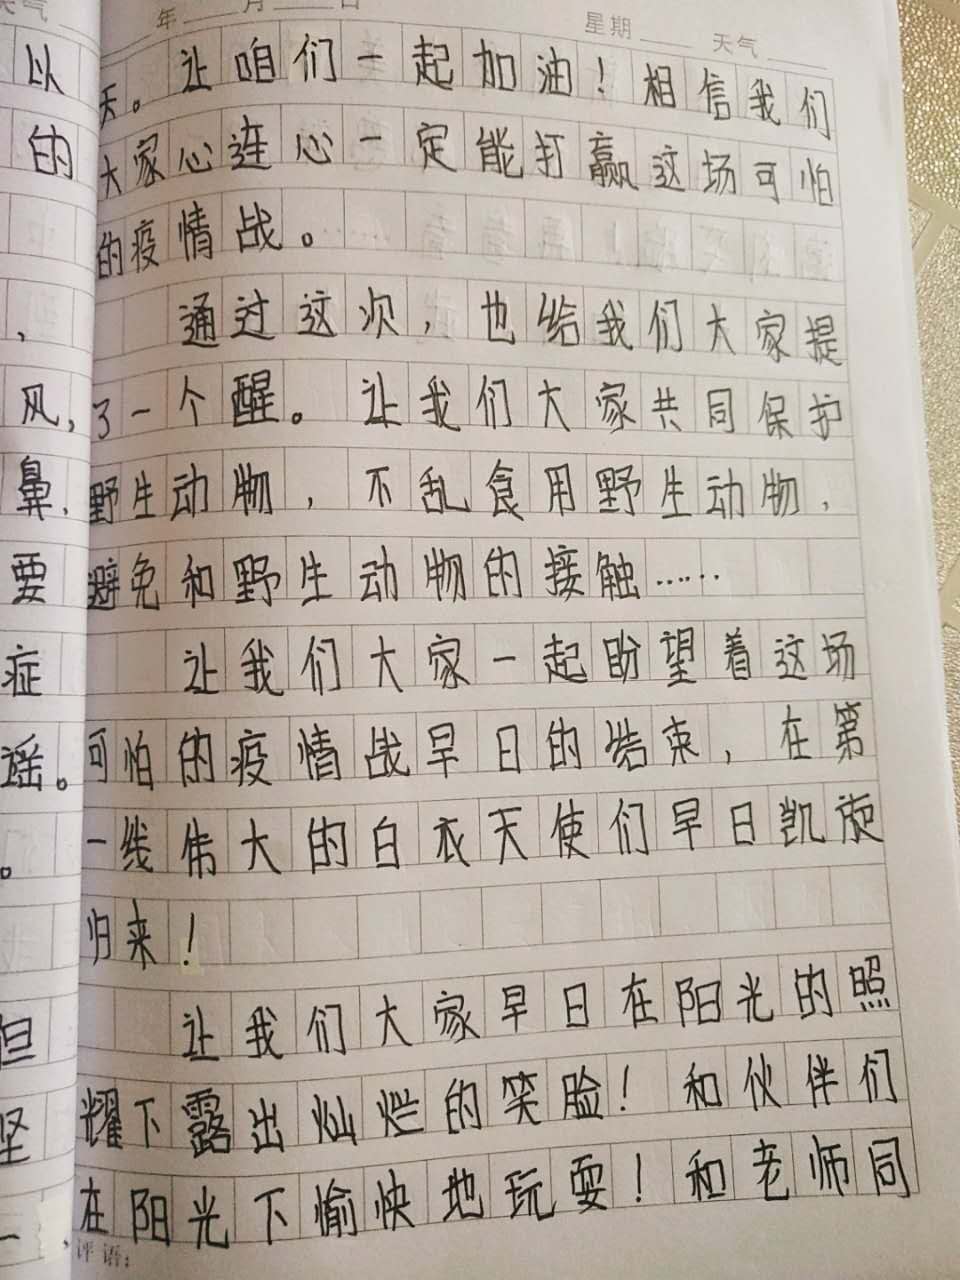 天气
年 月 日 星期 天气
以
的
,
风,
鼻,
要
症
谣。
。
但
坚
天。让咱们一起加油!相信我们
大家心连心一定能打赢这场可怕
的疫情战。
通过这次,也给我们大家提
了一个醒。让我们大家共同保护
野生动物,不乱食用野生动物,
避免和野生动物的接触……
让我们大家一起盼望着这场
可怕的疫情战早日的结束,在第
一线伟大的白衣天使们早日凯旋
归来!
让我们大家早日在阳光的照
耀下露出灿烂的笑脸!和伙伴们
在阳光下愉快地玩耍!和老师同
评语: